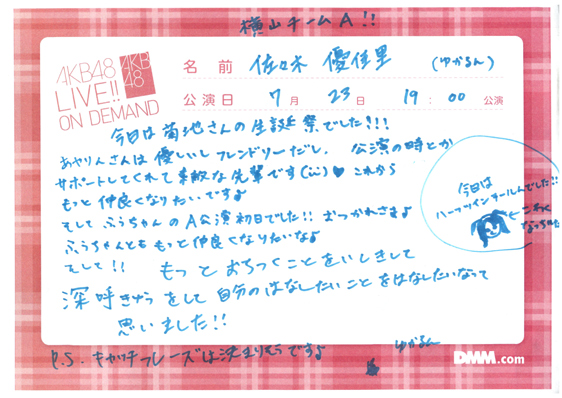 横山チームA!!
AKB48
LIVE!!
ON DEMAND
AKB
48
名前 佐々木 優佳里 (ゆかるん)
公演日 7月 23日 19:00 公演
今日は菊地さんの生誕祭でした!!!
あやりんさんは優しいしフレンドリーだし、公演の時とか
サポートしてくれて素敵な先輩です(ii)♥ これから
もっと仲良くなりたいですよ
そして ふうちゃんのA公演初日でした!! おつかれさまよ
ふうちゃんとも もっと仲良くなりたいなよ
そして!! もっとおちつくことをいしきして
深呼きゅうをして自分のはなしたいことをはなしたいなって
思いました!!
今日は
ハーフツインテールんでした!!
←こわく
なっちゃた
P.S. キャッチフレーズは決まりそうですよ
ゆかるん
DMM.com